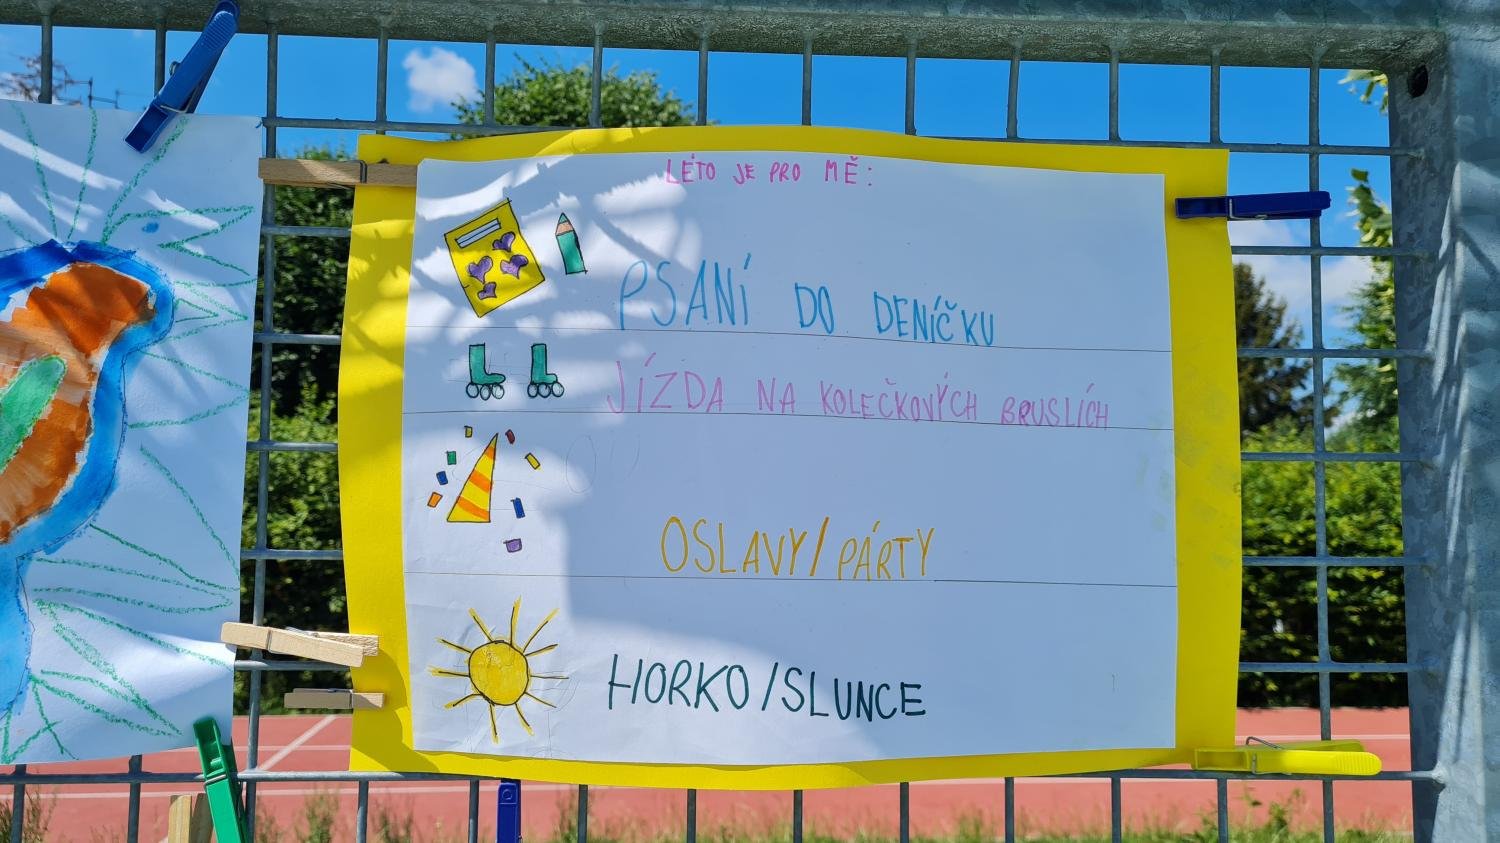 LÉTO JE PRO MĚ:
PSANÍ DO DENÍČKU
JÍZDA NA KOLEČKOVÝCH BRUSLÍCH
OSLAVY/PÁRTY
HORKO/SLUNCE